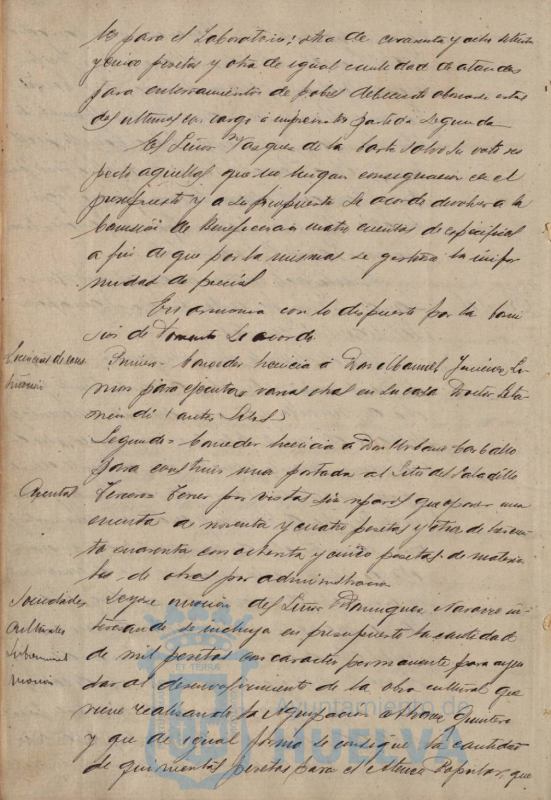 les para el Laboratorio; otra de cincuenta y ocho setenta
y cinco pesetas y otra de igual cantidad de ataudes
para enterramientos de pobres debiendo abonarse estas
dos ultimas con cargo a imprevistos partida segunda
El Señor Vazquez de la Corte salvo su voto res
pecto aquellas que no tengan consignacion en el
presupuesto y a su propuesta se acordo devolver a la
Comisión de Beneficencia cuatro cuentas de especifical
a fin de que por la misma se gestione la
de precial
En armonia con lo dispuesto por la Comi
sion de Fomento se acordo
Licencias de cons
trucción
Primero. Conceder licencia á Don Manuel Jimenez
para ejecutar varias obras en su casa Doctor Leta
mendi (antes
Segundo. Conceder licencia a Don Urbano Carballo
para construir una portada al sitio del Saladillo
Cuentas
Tercero. Tener por vistas sin reparos que oponer una
cuenta de noventa y cuatro pesetas y otra de
cuarenta con ochenta y cinco pesetas de materia
les de obras por administracion
Sociedades
Culturales
Subvencion
Leyose mocion del Señor Dominguez Navarro in
teresando se incluya en presupuesto la cantidad
de mil pesetas con caracter permanente para ayu
dar al desenvolvimiento de la obra cultural que
viene realizando la Agrupacion Alvarez Quintero
y que de igual forma se consigne la cantidad
de quinientas pesetas para el Ateneo Popular, que
Ayuntamiento de
HUELVA
ET TERRÆ